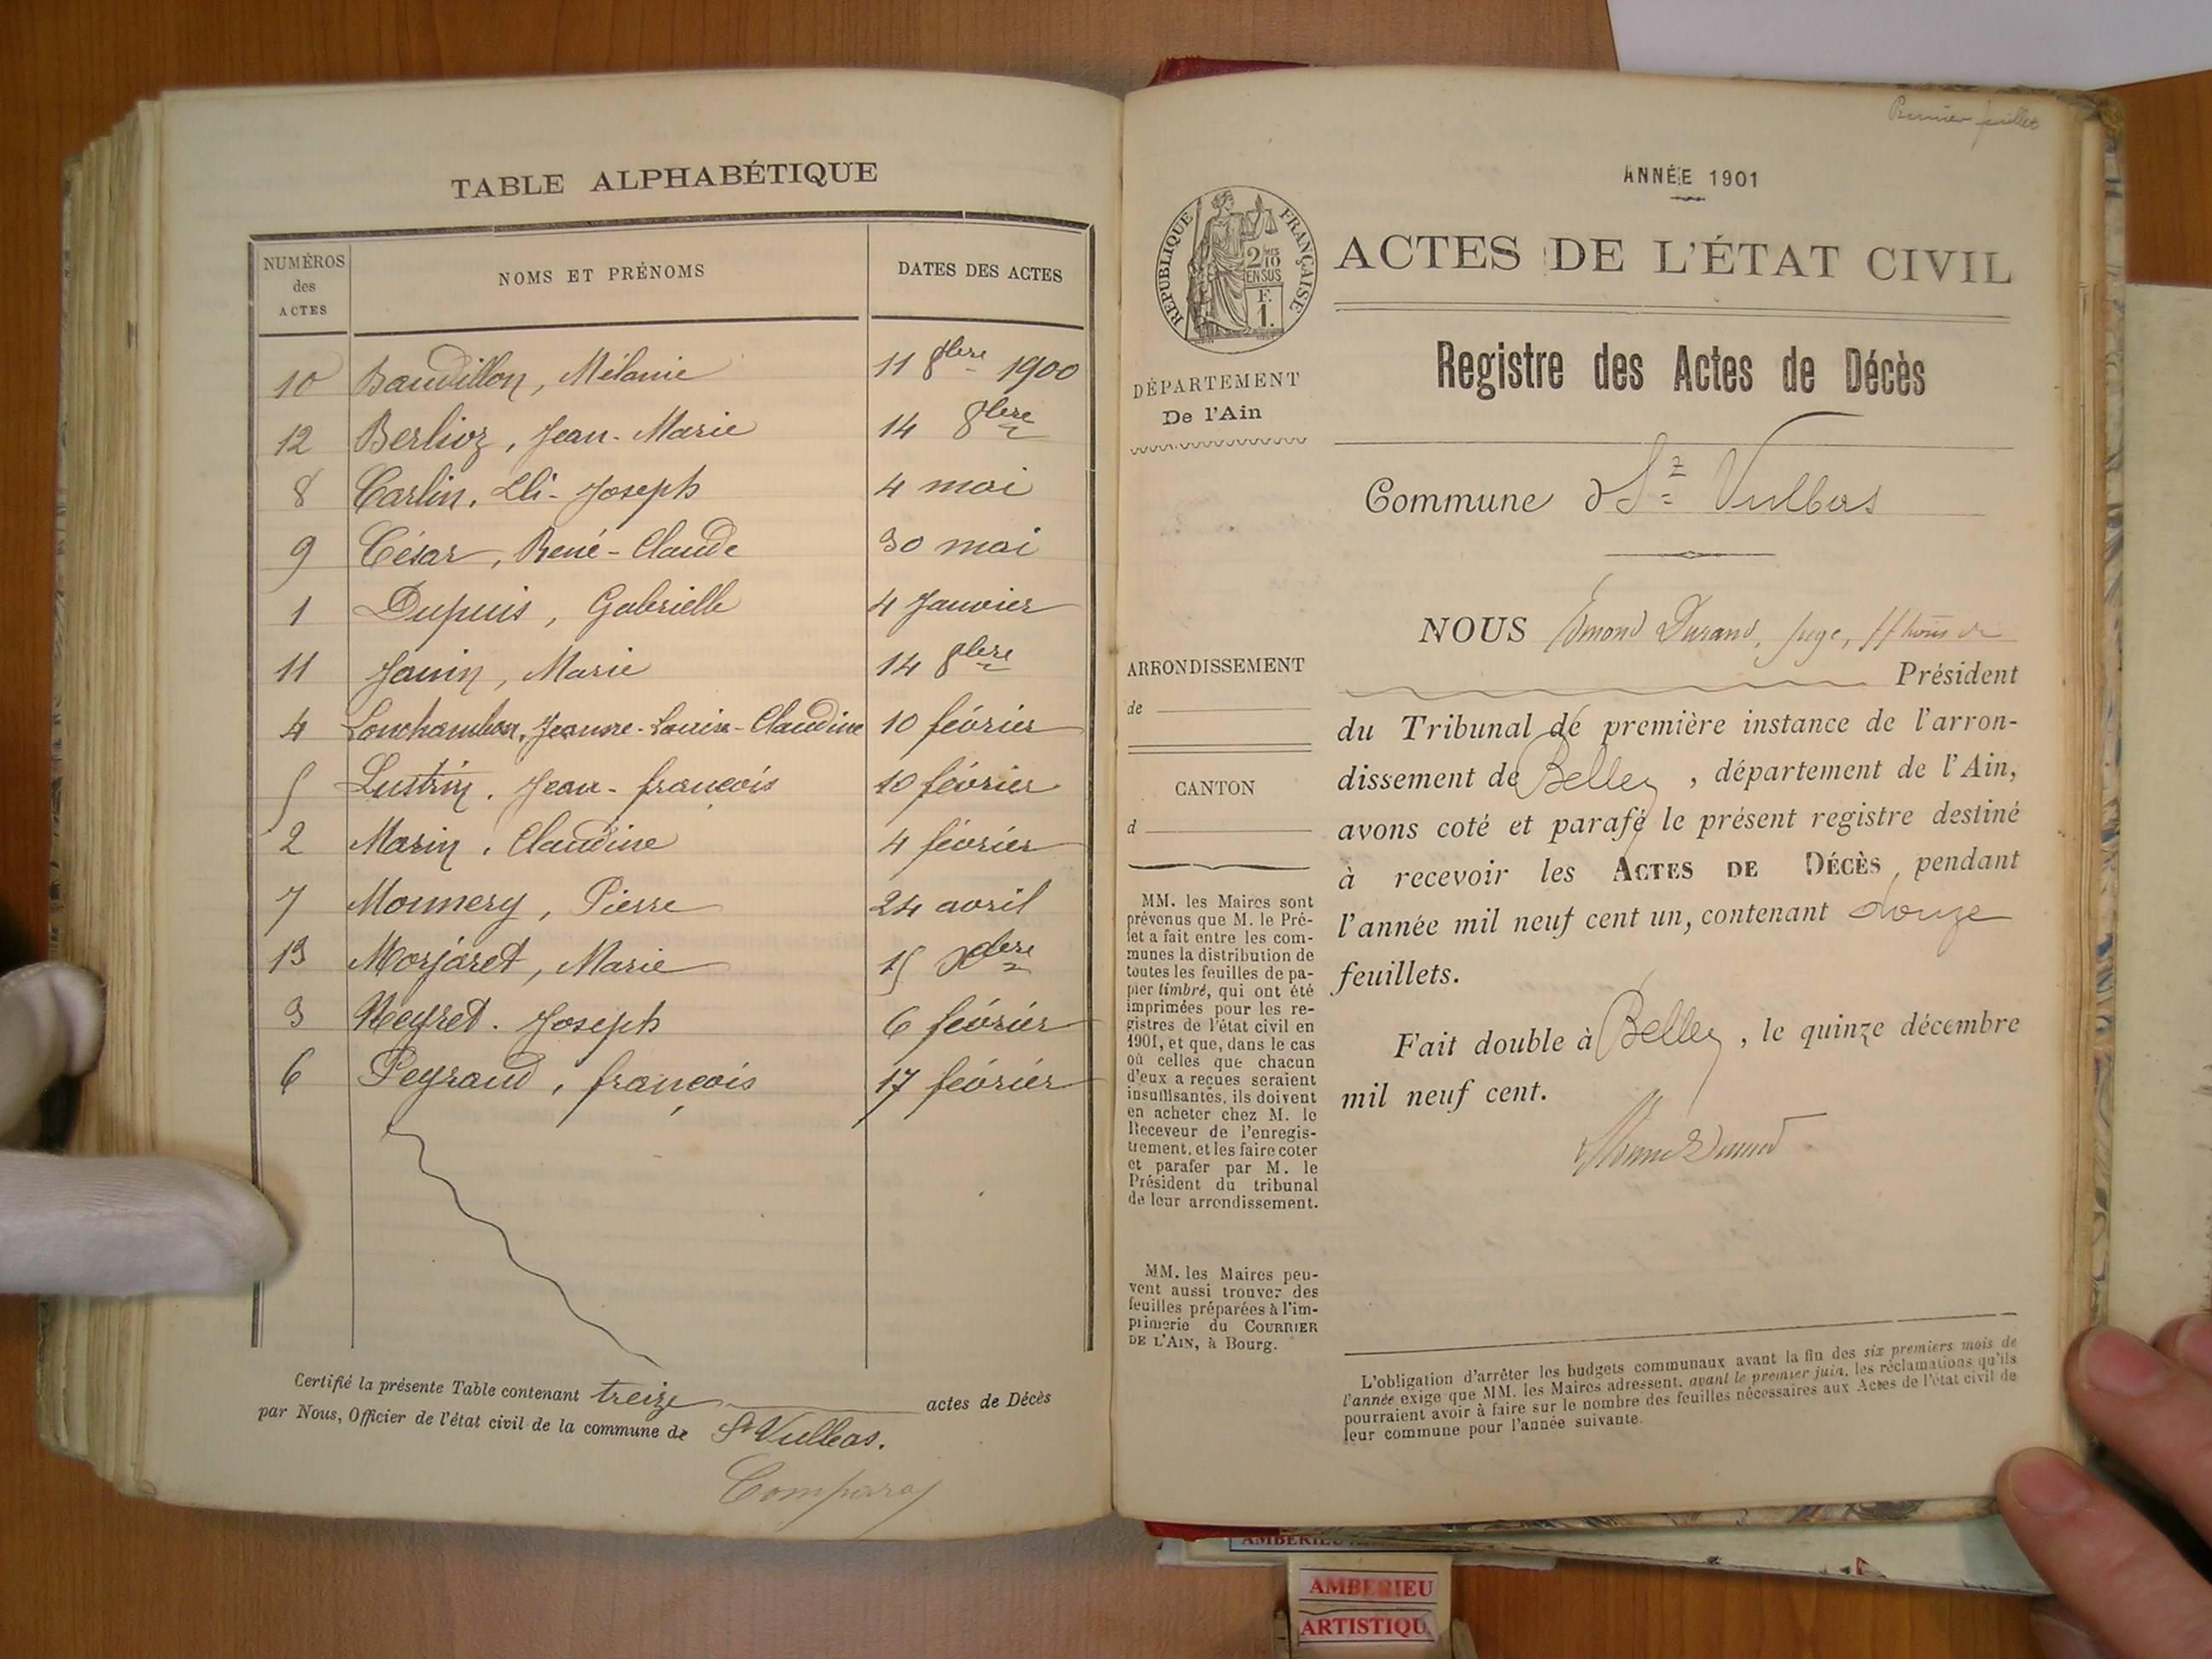 TABLE ALPHABÉTIQUE
NUMÉROS des ACTES
NOMS ET PRÉNOMS
DATES DES ACTES
10 Baudillon, Mélanie 11 8bre 1900
12 Berlioz, Jean-Marie 14 8bre
8 Carlin, Eli-Joseph 4 mai
9 César, René-Claude 30 mai
1 Dupuis, Gabrielle 4 Janvier
11 Janin, Marie 14 8bre
4 Lonchambon, Jeanne-Louise-Claudine 10 février
5 Lustrin, Jean-françois 10 février
2 Marin, Claudine 4 février
7 Monnery, Pierre 24 avril
13 Morjaret, Marie 15 Xbre
3 Neyret. Joseph 6 février
6 Peyraud, françois 17 février
Certifié la présente Table contenant treize actes de Décès
par Nous, Officier de l'état civil de la commune de St Vulbas.
Premier feuillet
ANNÉE 1901
RÉPUBLIQUE FRANÇAISE
2/10 EN SUS
F. 1.
ACTES DE L'ÉTAT CIVIL
Registre des Actes de Décès
DÉPARTEMENT
De l'Ain
Commune d St Vulbas
ARRONDISSEMENT
de
CANTON
d
MM. les Maires sont
prévenus que M. le Pré-
fet a fait entre les com-
munes la distribution de
toutes les feuilles de pa-
pier timbré, qui ont été
imprimées pour les re-
gistres de l'état civil en
1901, et que, dans le cas
où celles que chacun
d'eux a reçues seraient
insuffisantes, ils doivent
en acheter chez M. le
Receveur de l'enregis-
trement, et les faire coter
et parafer par M. le
Président du tribunal
de leur arrondissement.
MM. les Maires peu-
vent aussi trouver des
feuilles préparées à l'im-
primerie du COURRIER
DE L'AIN, à Bourg.
NOUS Edmond Durand, Juge,
Président
du Tribunal de première instance de l'arron-
dissement de Belley, département de l'Ain,
avons coté et parafé le présent registre destiné
à recevoir les ACTES DE DÉCÈS, pendant
l'année mil neuf cent un, contenant douze
feuillets.
Fait double à Belley, le quinze décembre
mil neuf cent.
L'obligation d'arrêter les budgets communaux avant la fin des six premiers mois de
l'année exige que MM. les Maires adressent, avant le premier juin, les réclamations qu'ils
pourraient avoir à faire sur le nombre des feuilles nécessaires aux Actes de l'état civil de
leur commune pour l'année suivante.
AMBERIEU
AMBERIEU
ARTISTIQU